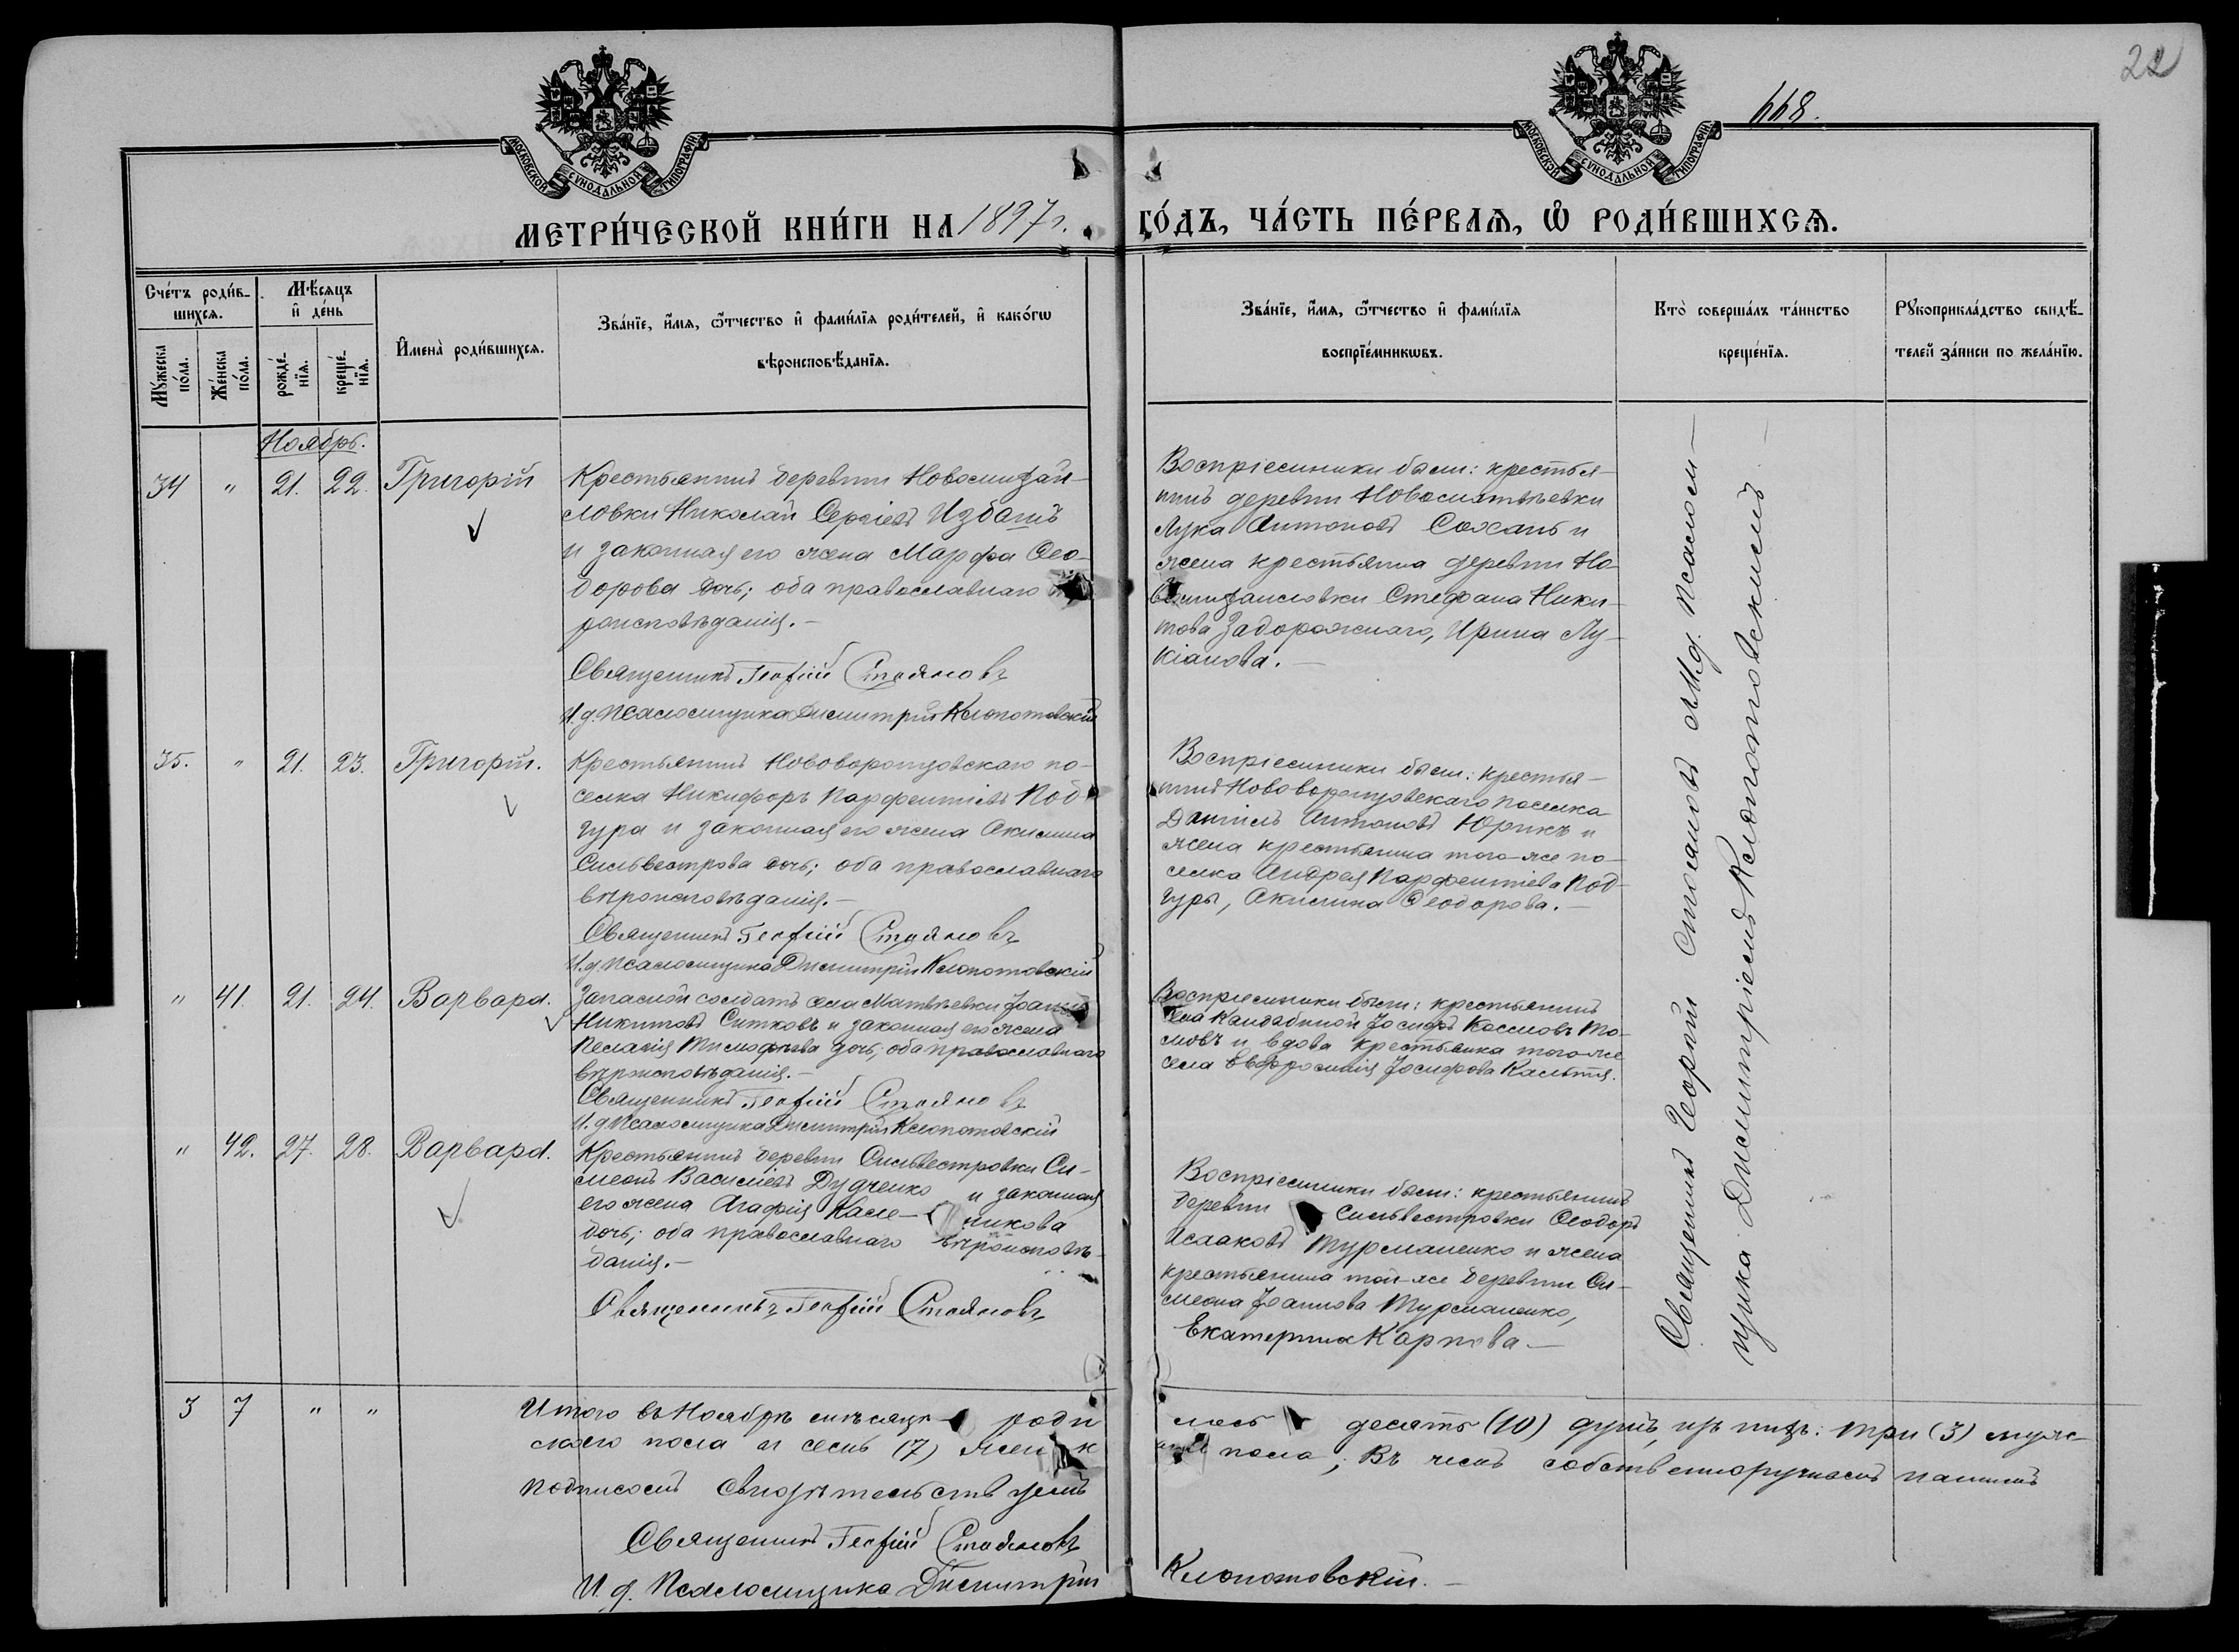 22
668.
МОСКОВСКОЙ СѴНОДАЛЬНОЙ ТИПОГРАФІИ
МОСКОВСКОЙ СѴНОДАЛЬНОЙ ТИПОГРАФІИ
МЕТРИ́ЧЕСКОЙ КНИ́ГИ НА 1897 г. ГО́ДЪ, ЧА́СТЬ ПЕ́РВАѦ, Ѽ РОДИ́ВШИХСѦ.
Сче́тъ роди́в-
шихсѧ.
Мꙋ́жеска по́ла.
Же́нска по́ла.
Мѣ́сѧцъ и҆ де́нь
рожде́-
нїѧ.
креще́-
нїѧ.
И҆мена̀ роди́вшихсѧ.
Зва́нїе, и҆́мѧ, ѻ҆́тчество и҆ фами́лїѧ роди́телей, и҆ како́гѡ
вѣроисповѣ́данїѧ.
Зва́нїе, и҆́мѧ, ѻ҆́тчество и҆ фами́лїѧ
воспрїе́мникѡвъ.
Кто̀ соверша́лъ та́инство
креще́нїѧ.
Рꙋкоприкла́дство свидѣ́-
телей за́писи по жела́нїю.
Ноябрь.
34 " 21. 22. Григорій
Крестьянинъ деревни Новомихай-
ловки Николай Сергіевъ Избашъ
и законная его жена Марфа Ѳео-
дорова дочь; оба православнаго
роисповѣданія.-
Священникъ Георгій Стояновъ
И.д. псаломщика Димитрій Клопотовскій
Воспріемники были: крестья-
нинъ деревни Новоматвѣевки
Лука Антоновъ Сохань и
жена крестьянина деревни Но-
вомихайловки Стефана Ники-
това Задорожнаго, Ирина Лу-
кіанова.-
35. " 21. 23. Григорій.
Крестьянинъ Нововоронцовскаго по-
селка Никифоръ Парфентіевъ Под-
гура и законная его жена Акилина
Сильвестрова дочь; оба православнаго
вѣроисповѣданія.-
Священникъ Георгій Стояновъ
И.д. псаломщика Димитрій Клопотовскій
Воспріемники были: крестья-
нинъ Нововоронцовскаго поселка
Даніилъ Антоновъ Юрикъ и
жена крестьянина того-же по-
селка Андрея Парфентіева Под-
гуры, Акилина Ѳеодорова.-
" 41. 21. 24. Варвара.
Запасной солдатъ села Матвѣевки Іоаннъ
Никитовъ Ситковъ и законная его жена
Пелагія Тимофѣева дочь; оба православнаго
вѣроисповѣданія.-
Священникъ Георгій Стояновъ
И.д. псаломщика Димитрій Клопотовскій
Воспріемники были: крестьянинъ
села Кандабиной Іосифъ Космовъ То-
мовъ и вдова крестьянка того-же
села Евфросинія Іосифова
" 42. 27. 28. Варвара.
Крестьянинъ деревни Сильвестровки Си-
меонъ Василіевъ Дудченко и законная
его жена Агафія Кале- никова
дочь; оба православнаго вѣроисповѣ-
данія.-
Священникъ Георгій Стояновъ
Воспріемники были: крестьянинъ
деревни Сильвестровки Ѳеодоръ
Исааковъ Турманенко и жена
крестьянина той-же деревни Си-
меона Іоаннова Турманенко,
Екатерина Карпова-
Священникъ Георгій Стояновъ И.д. псалом-
щика Димитріемъ Клопотовскимъ
3 7 " "
Итого въ Ноябрѣ мѣсяцѣ роди лось десять (10) душъ, изъ нихъ: три (3) муж-
скаго пола и семь (7) жен пола; въ чемъ собственноручнымъ нашимъ
подписомъ свидѣтельствуемъ
Священникъ Георгій Стояновъ
И.д. Псаломщика Димитрій Клопотовскій.-